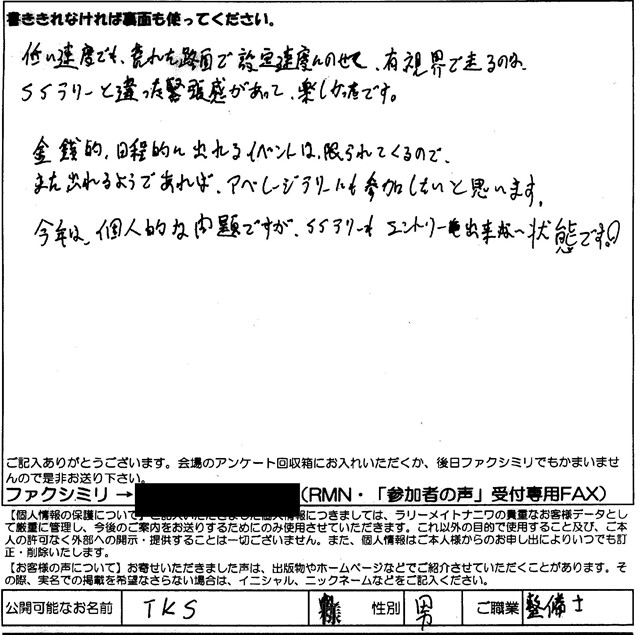 書ききれなければ裏面も使ってください。
低い速度でも、荒れた路面で設定速度にのせて、有視界で走るのは、
SSラリーと違った緊張感があって、楽しかったです。
金銭的、日程的に出れるイベントは、限られてくるので、
また出れるようであれば、アベレージラリーにも参加したいと思います。
今年は、個人的な問題ですが、SSラリーも エントリー出来ない状態です。
ご記入ありがとうございます。会場のアンケート回収箱にお入れいただくか、後日ファクシミリでもかまいませ
んので是非お送り下さい。
ファクシミリ → (RMN・「参加者の声」受付専用FAX)
【個人情報の保護について】ご記入いただきました個人情報につきましては、ラリーメイトナニワの貴重なお客様データとし
て厳重に管理し、今後のご案内をお送りするためにのみ使用させていただきます。これ以外の目的で使用すること及び、ご本
人の許可なく外部への開示・提供することは一切ございません。また、個人情報はご本人様からのお申し出によりいつでも訂
正・削除いたします。
【お客様の声について】お寄せいただきました声は、出版物やホームページなどでご紹介させていただくことがあります。そ
の際、実名での掲載を希望なさらない場合は、イニシャル、ニックネームなどをご記入ください。
公開可能なお名前 TKS 様 性別 男 ご職業 整備士